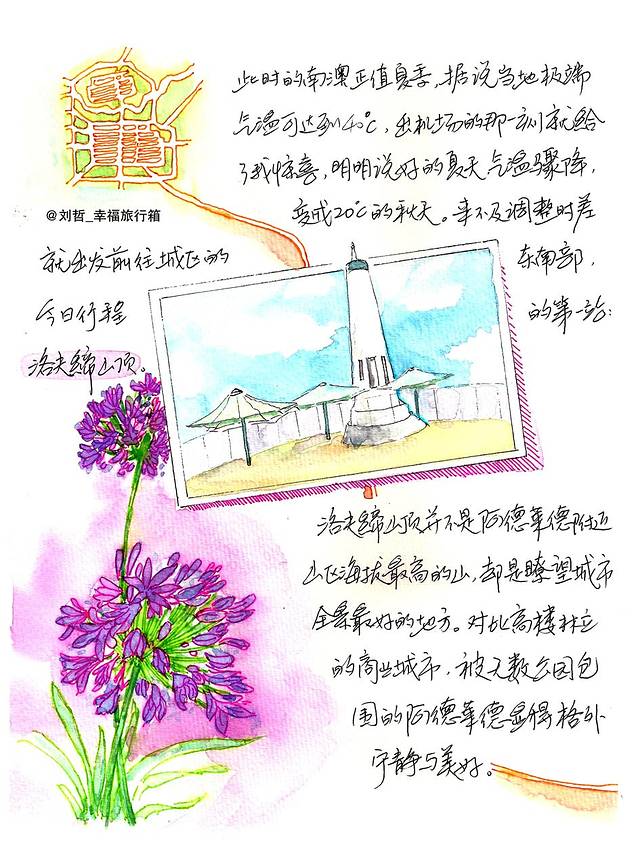 此时的南澳正值夏季,据说当地极端
气温可达到40℃,出机场的那一刻就给
了我惊喜,明明说好的夏天气温骤降,
变成20℃的秋天。来不及调整时差
@刘哲_幸福旅行箱
就出发前往城区的东南部,
今日行程的第一站:
洛夫缔山顶。
洛夫缔山顶并不是阿德莱德附近
山区海拔最高的山,却是瞭望城市
全景最好的地方。对比高楼林立
的商业城市,被无数公园包
围的阿德莱德显得格外
宁静与美好。